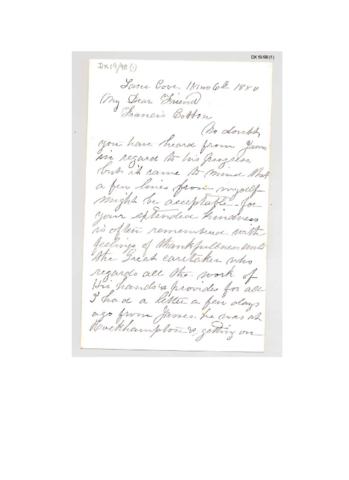 DX19/98 (1)
DX19/98(1)
Lane Cove 11 mo 6th 1880
My Dear Friend
Francis Cotton
No doubt
you have heard from James
in regard to his progress
but it came to mind that
a few lines from myself
might be acceptable for
your extended kindness
is often remembered with
feelings of thankfulness unto
the Great caretaker who
regards all the work of
His hands & provides for all
I had a letter a few days
ago from James he was at
Rockhampton & getting on